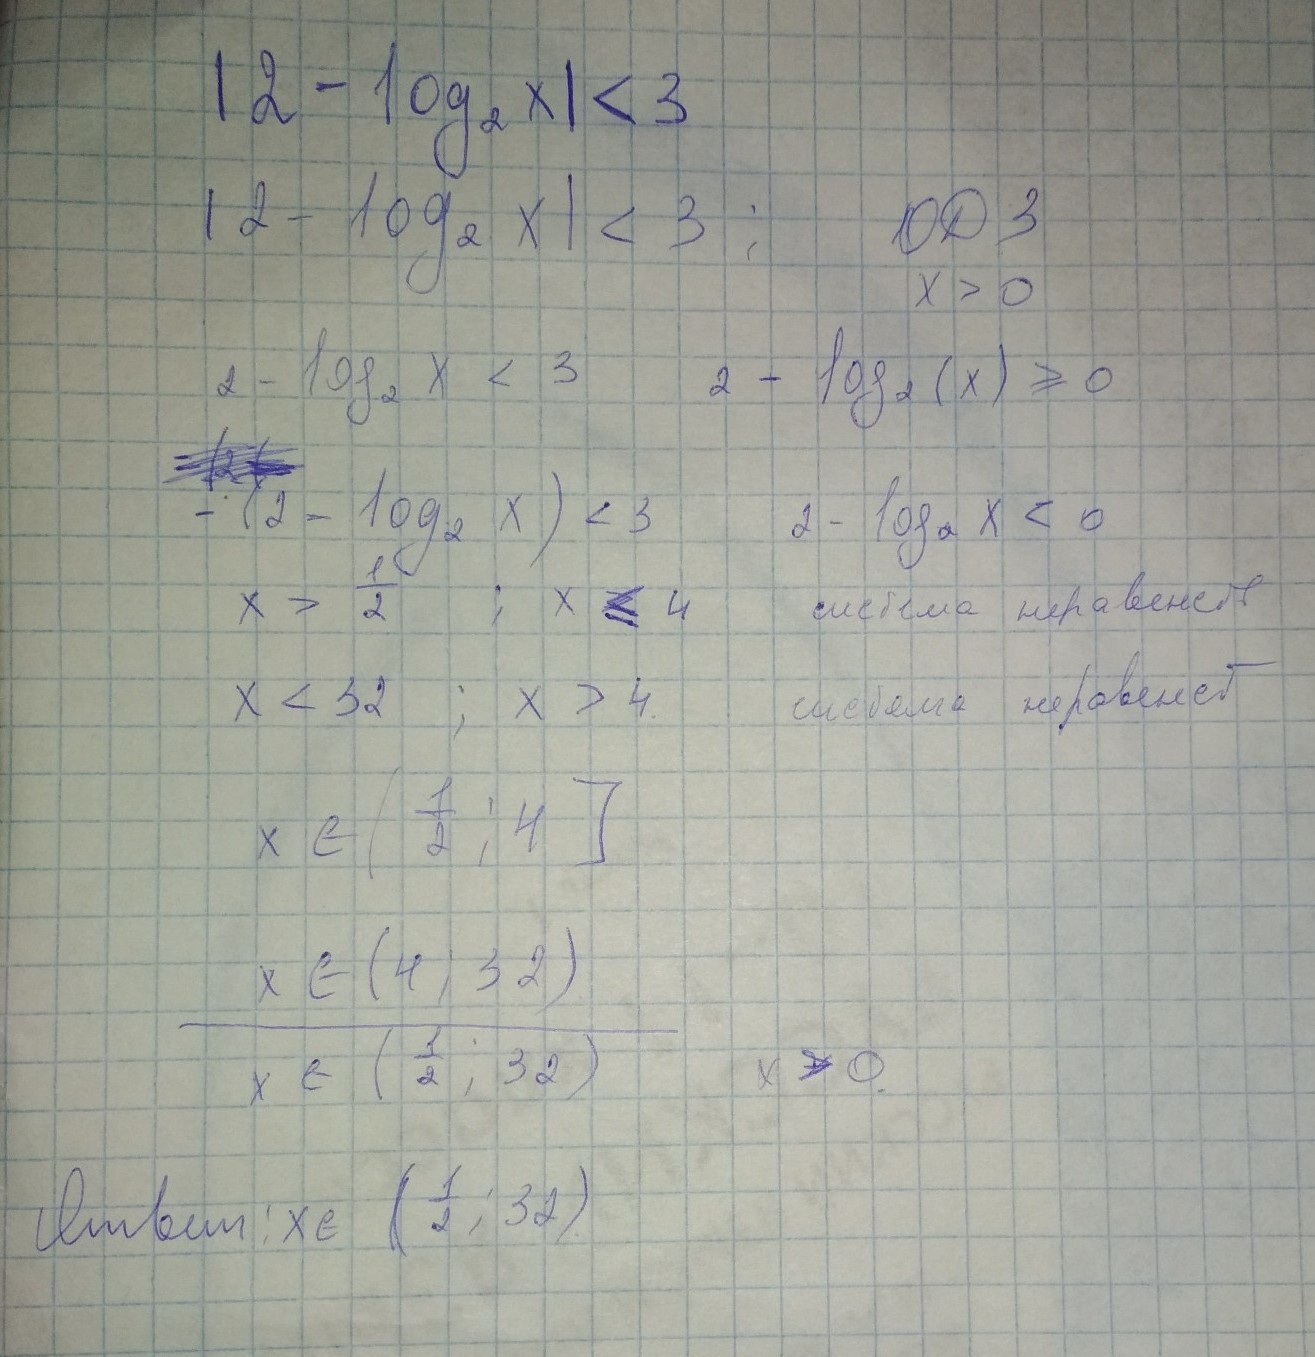 |2 - log₂ x| < 3
|2 - log₂ x| < 3 ; ОДЗ
x > 0
2 - log₂ x < 3 2 - log₂ (x) ⩾ 0
- (2 - log₂ x) < 3 2 - log₂ x < 0
x > 1/2 ; x ⩽ 4 система неравенств
x < 32 ; x > 4. система неравенств
x ∈ (1/2 ; 4]
x ∈ (4 ; 32)
x ∈ (1/2 ; 32) x > 0.
Ответ: x ∈ (1/2 ; 32).